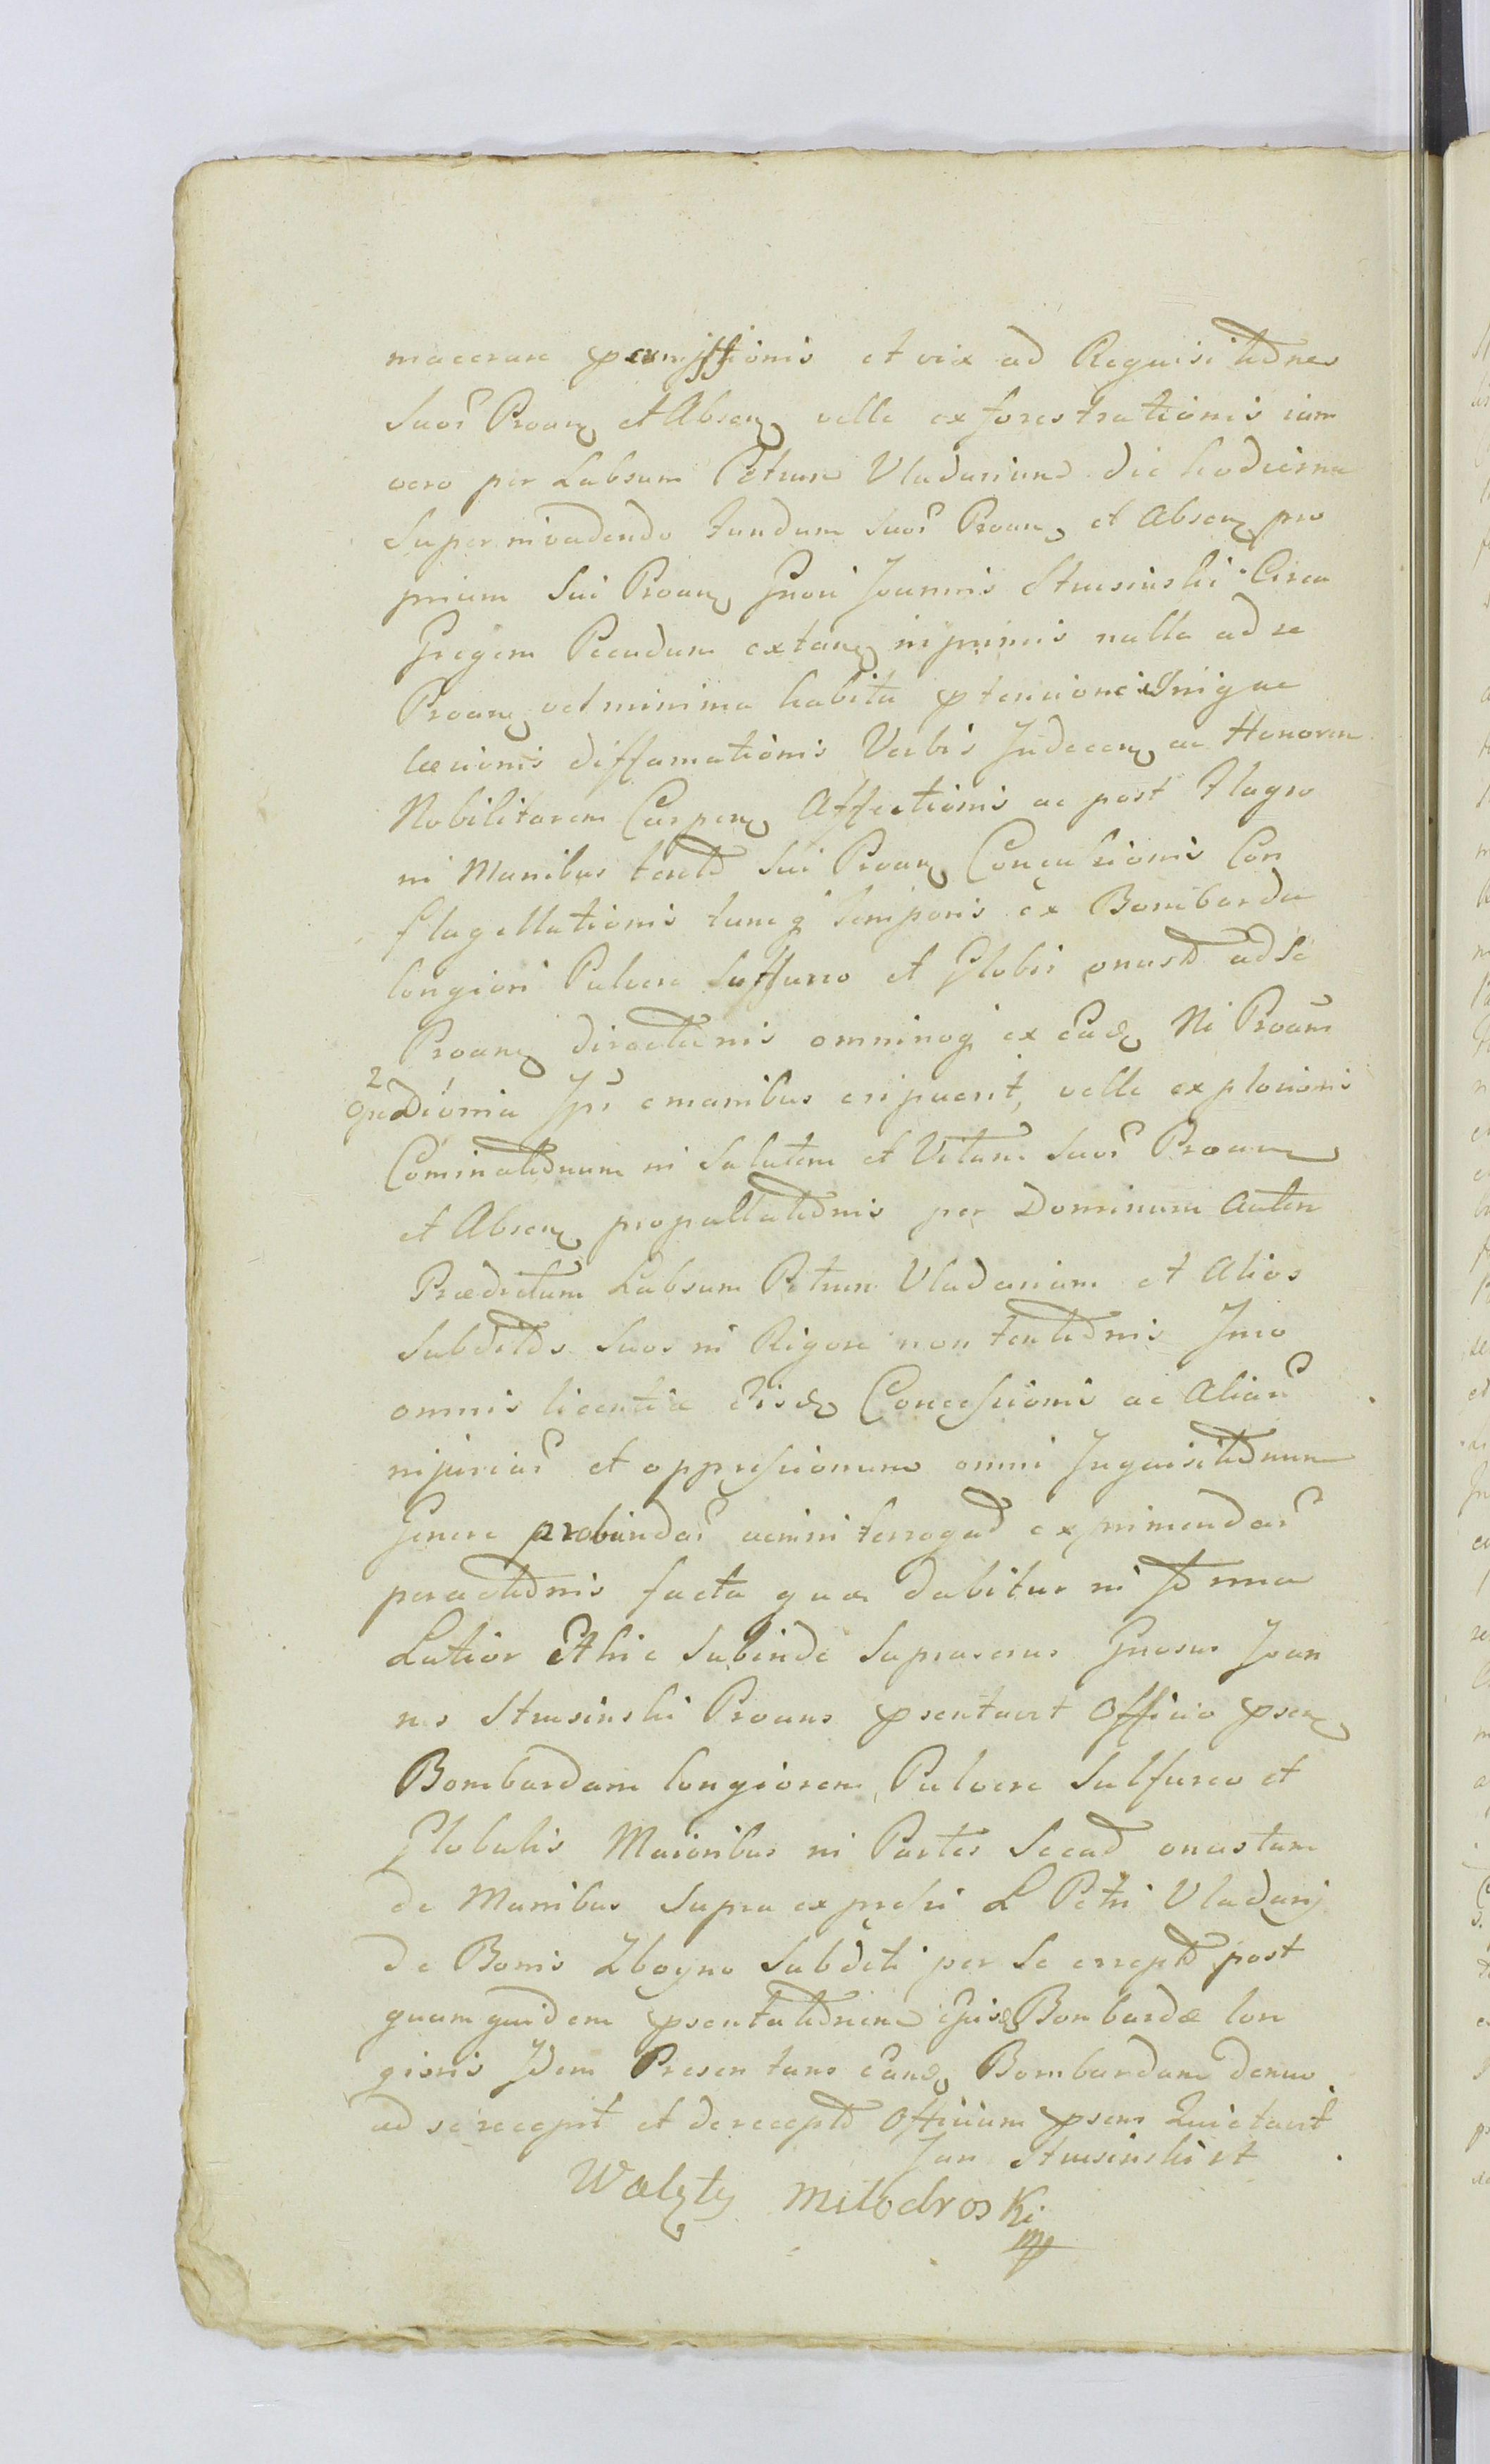 macerare permissionis et vix ad Requisitiones
Suor Proan et Absen velle exforestrationis iam
vero per Labsum Petrum Vladarium die hodierna
Superinvadendo fundum Suor Proan et Absen pro
prium Sui Proan Gnosi Joannis Strusinski Circa
Gregem Pecudum extan inprimis nulla ad se
Proan vel minima habita ptensione
læsionis diffamationis Verbis Indecen ac Honorem
Nobilitarem Carpen Affectionis ac post flagro
in Manibus tento Sui Proan Concussionis Con
flagellationis tumq temporis ex Bombarda
longiori Pulvere Suffureo et Globis onusto ad Se
Proan directionis omninoq ex eade Ni Proan
2 1
Ipsi e manibus eripuerit, velle explosionis
Cominationum in Salutem et Vitam Suor Proan
et Absen propallationis per Dominum Autem
Prædictum Labsum Petrum Vladarium et Alios
Subditos Suos in Rigore non tentionis Imo
omnis licentiæ Eisde Concessionis ac Aliar
injuriar et oppressionum omni Inquisitionum
Genere probandar exprimendar
peractionis facta quæ dabitur in Forma
Latior Et hic Subinde Suprascrus Gnosus Joan
nes Strusinski Proans psentavit Officio psen
Bombardam longiorem, Pulvere Sulfureo et
Globulis Maioribus in Partes Secato onustam
de Manibus Supra expressi L Petri Vladarij
de Bonis Zboyno Subditi per Se ereptò post
quam quidem psentationem Bombardæ lon
gioris Idem Presentans eande Bombardam denuo
ad se recepit et de recepto Officium psens Quietavit
Jan Strusinski vt
Walęty Miłodroski
mp